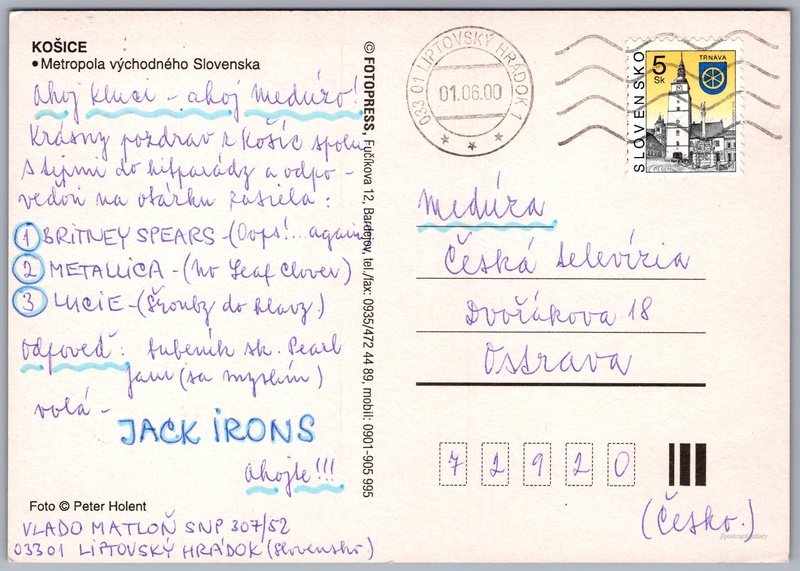 KOŠICE
•Metropola východného Slovenska
Ahoj kluci - ahoj Medúzo!
Krásny pozdrav z Košíc spolu
s tipmi do hitparády a odpo-
veďou na otázku zasiela:
1 BRITNEY SPEARS - (Oops!... again)
2 METALLICA - (No Leaf Clover)
3 LUCIE - (Šrouby do hlavy.)
Odpoveď: bubeník sk. Pearl
Jam (sa myslím)
volá -
JACK IRONS
Ahojte!!!
Foto © Peter Holent
VLADO MATLOŇ SNP 307/52
033 01 LIPTOVSKÝ HRÁDOK (Slovensko)
© FOTOPRESS, Fučíkova 12, Bardejov, tel./fax: 0935/472 44 89, mobil: 0901-905 995
033 01 LIPTOVSKÝ HRÁDOK 1
01.06.00
SLOVENSKO
5 Sk
TRNAVA
Medúza
Česká televízia
Dvořákova 18
Ostrava
7 2 9 2 0
(Česko.)